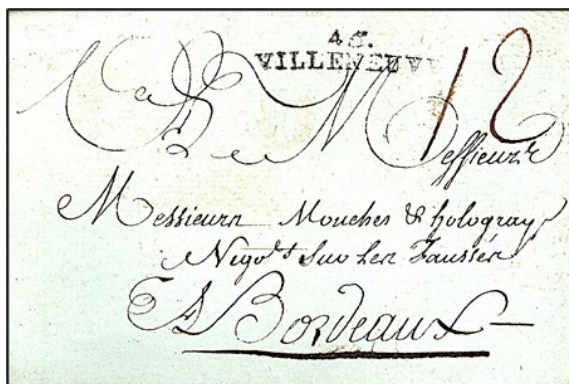 45.
VILLENEUV
12
A Messieurs
Messieurs Mouches & hologray
Nego.ts sur les faussés
A Bordeaux